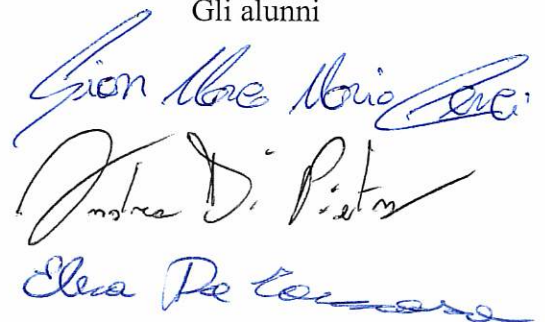 Gli alunni
Gian Marco Mario
Andrea Di Pietro
Elena De